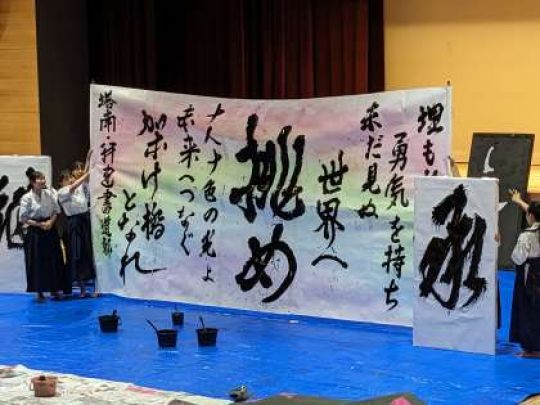 埋も
勇気を持ち
未だ見ぬ
世界へ
挑め
十人十色の光よ
未来へつなぐ
架け橋
となれ
塔南・開建書道部